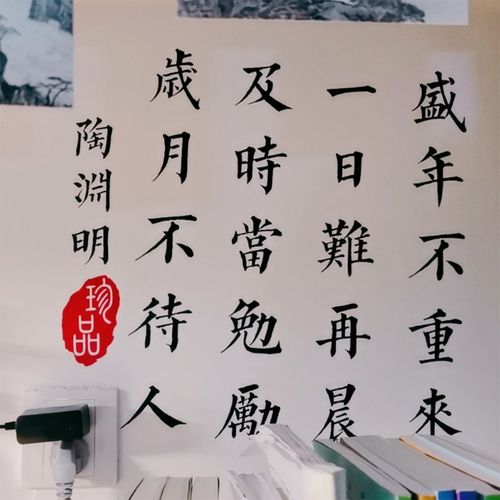 盛年不重來
一日難再晨
及時當勉勵
歲月不待人
陶淵明
珍品